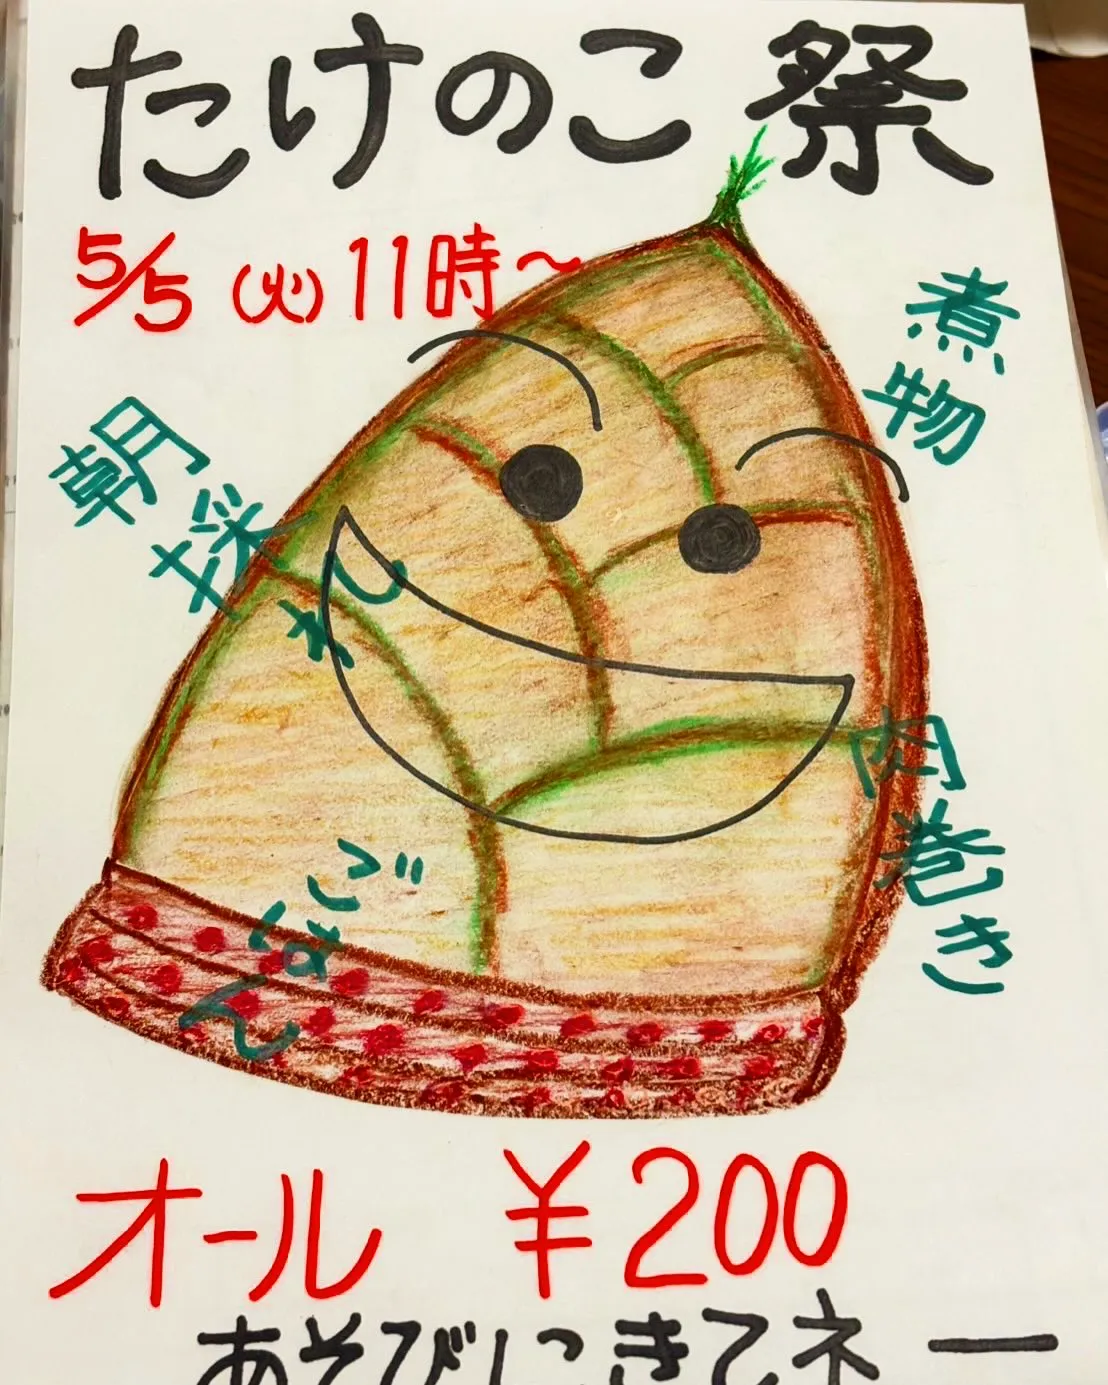 たけのこ祭
5/5(火)11時～
煮物
朝採れ
肉巻き
ごはん
オール ¥200
あそびにきてネー